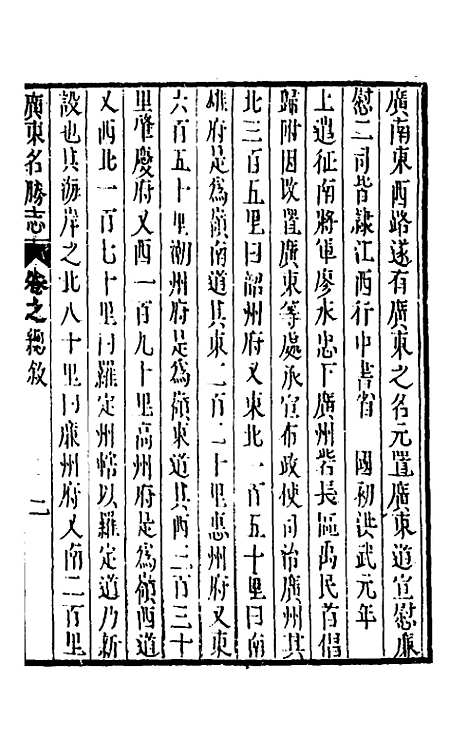 廣南東西路遂有廣東之名元置廣東道宣慰廉
慰二司皆隸江西行中書省　國初洪武元年
上遣征南將軍廖永忠下廣州砦長區禹民首倡
歸附因改置廣東等處承宣布政使司治廣州其
北三百五里曰韶州府又東北一百五十里曰南
雄府是爲嶺南道其東二百二十里惠州府又東
六百五十里潮州府是爲嶺東道其西三百三十
里肇慶府又西一百九十里高州府是爲嶺西道
又西北一百七十里曰羅定州轄以羅定道乃新
設也其海岸之北八十里曰廉州府又南二百里
廣東名勝志　卷之總敘　二